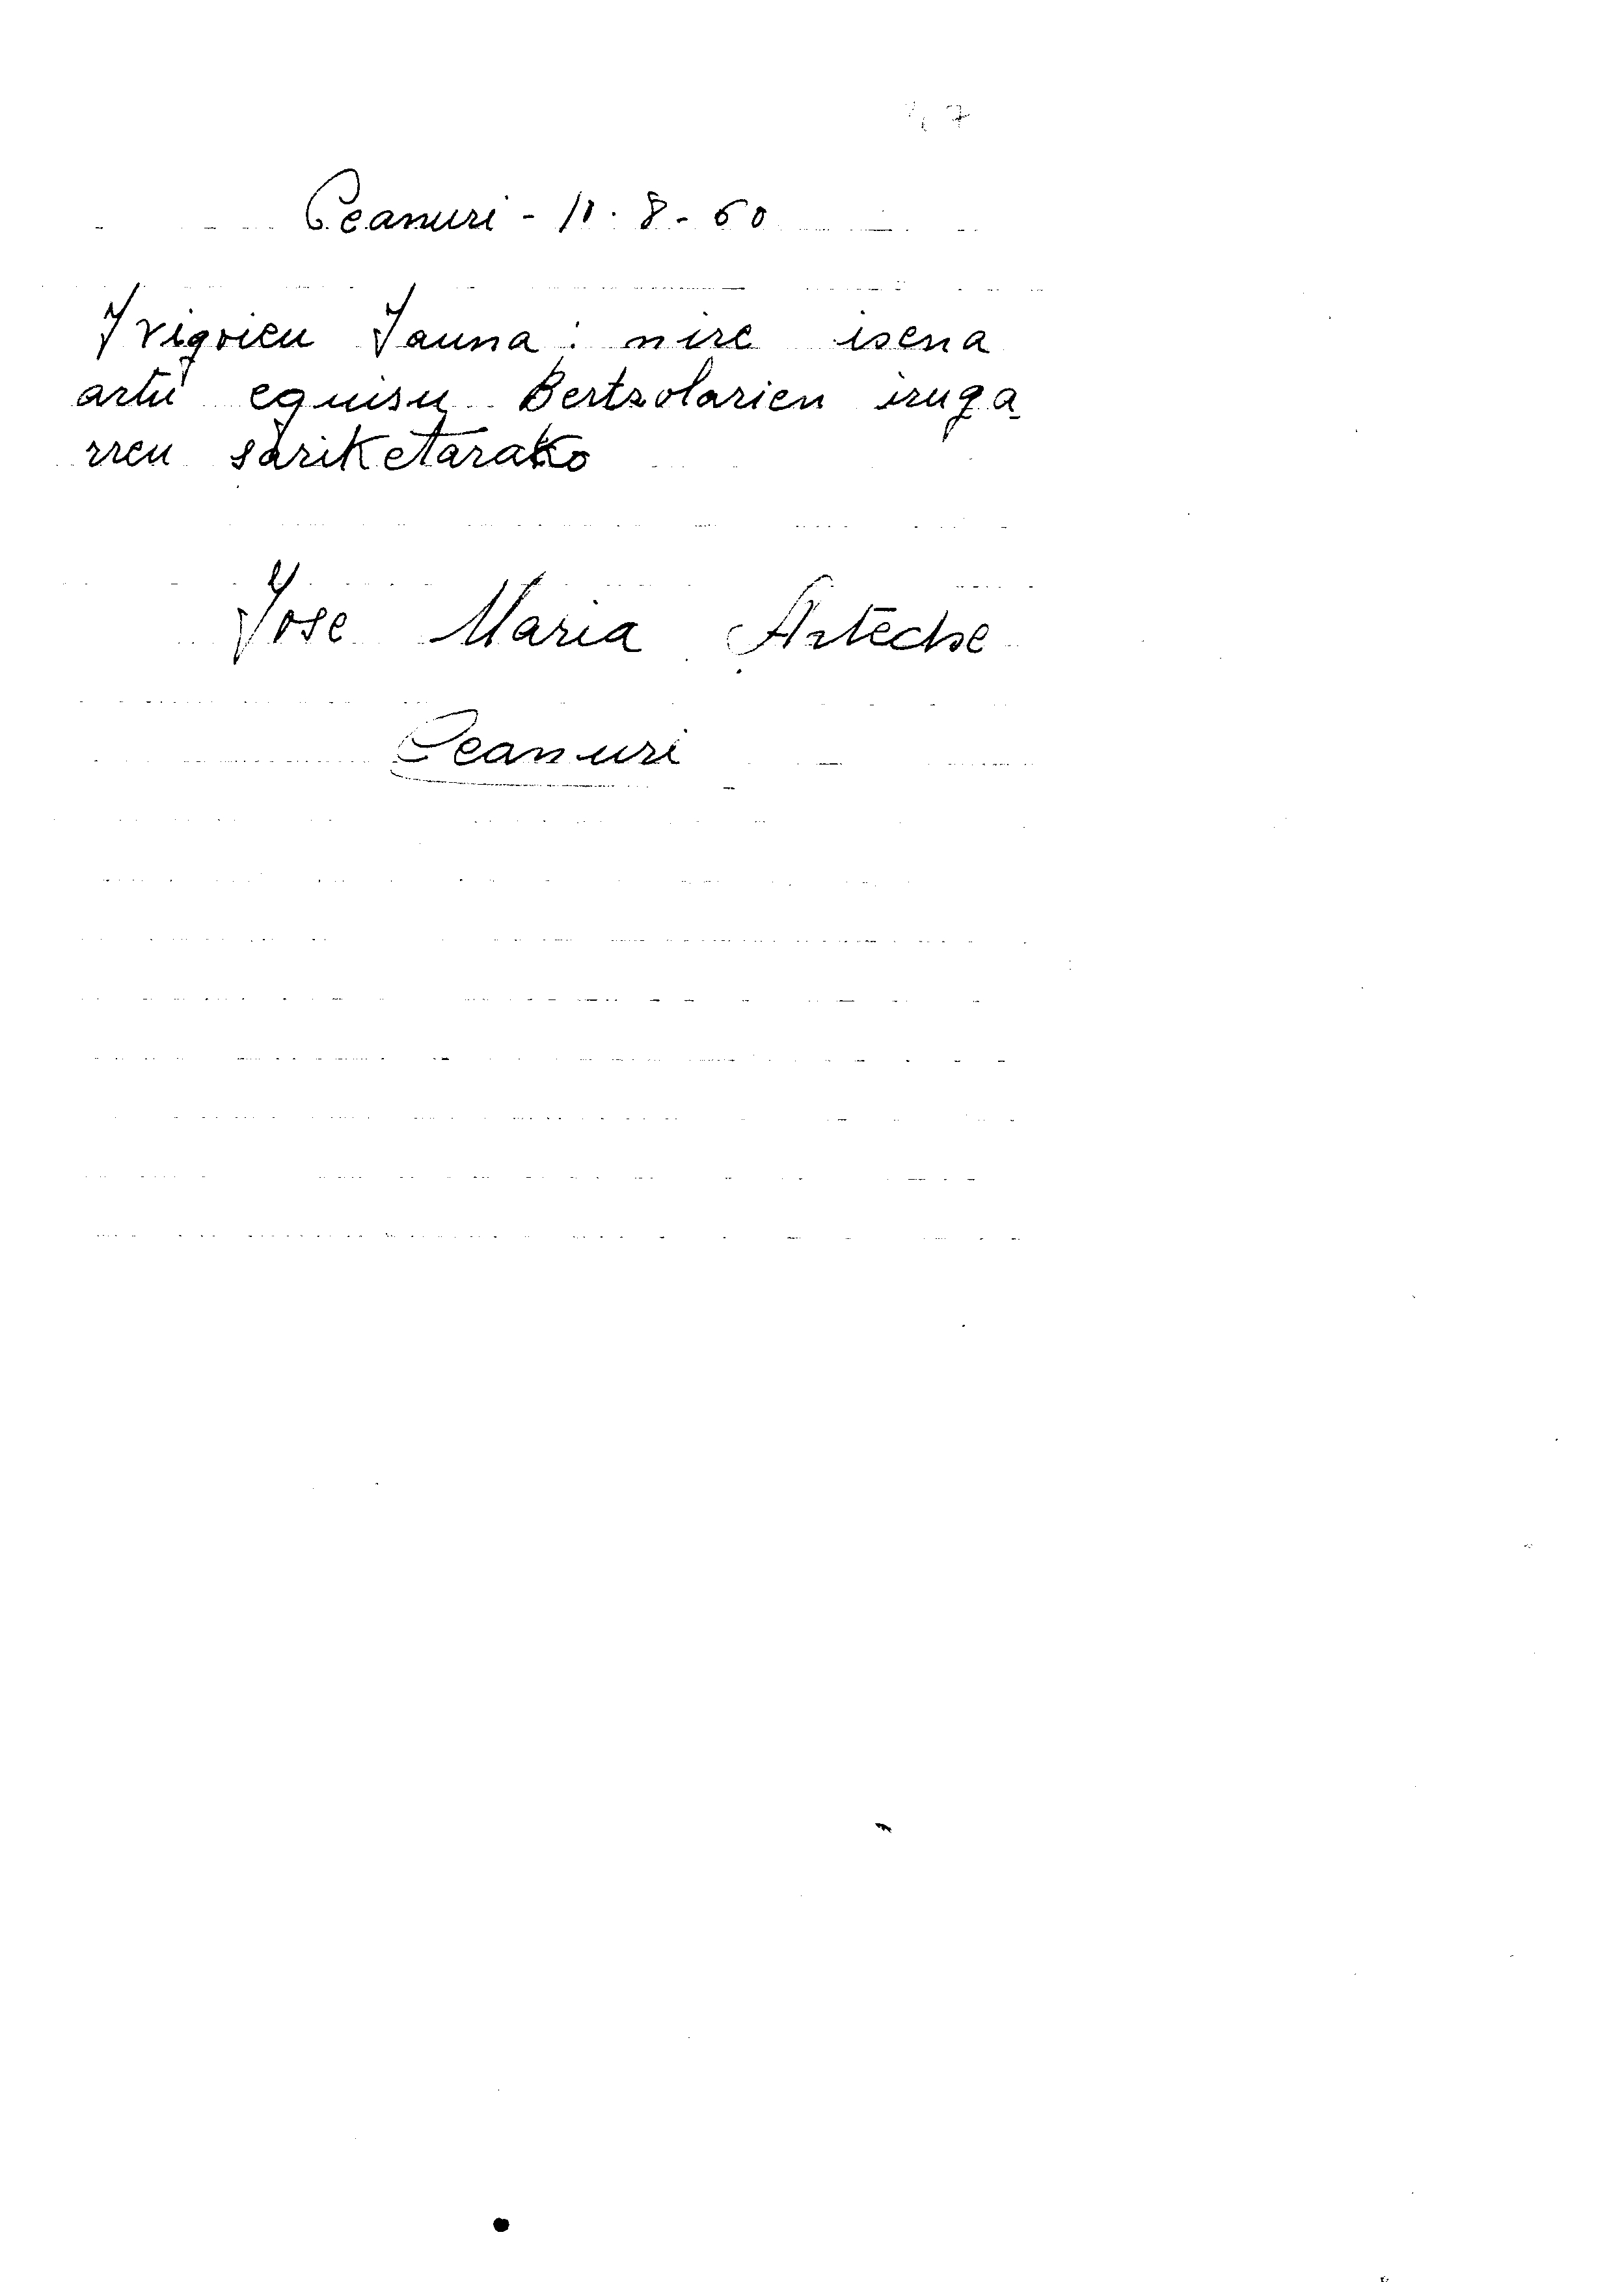 Ceanuri - 10. 8 - 60
Yrigoien Jauna: nire isena
artu eguisu Bertsolarien iruga
rren sariketarako
Jose Maria Arteche
Ceanuri